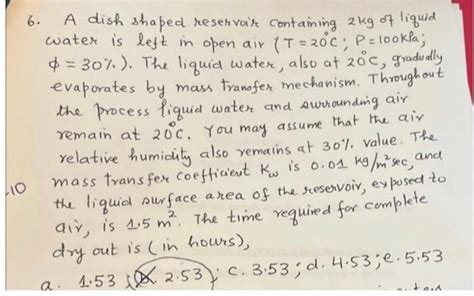 6. A dish shaped reservoir containing 2kg of liquid
water is left in open air (T = 20°C; P = 100kPa;
ϕ = 30%). The liquid water, also at 20°C, gradually
evaporates by mass transfer mechanism. Throughout
the process liquid water and surrounding air
remain at 20°C. You may assume that the air
relative humidity also remains at 30% value. The
mass transfer coefficient Kω is 0.01 kg/m² sec, and
-10 the liquid surface area of the reservoir, exposed to
air, is 1.5 m². The time required for complete
dry out is (in hours),
a. 1.53 ; b. 2.53 ; c. 3.53 ; d. 4.53 ; e. 5.53